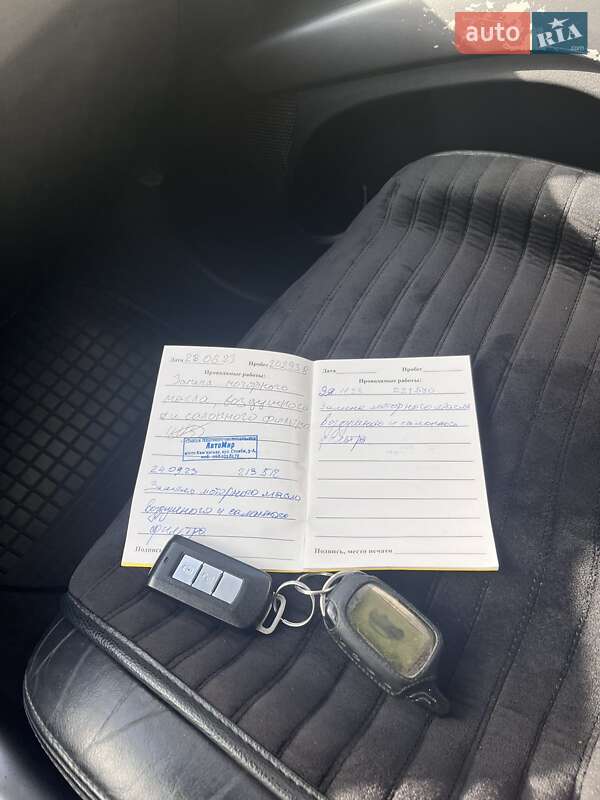 auto RIA.com
Дата 28.06.23 Пробег
Проводимые работы:
Замена моторного
масла, воздушного
и салонного фильтра
АвтоМир
24.09.23 213 512
Замена моторного масла
воздушного и салонного
фильтра
Подпись,
Дата Пробег
Проводимые работы:
замена моторного масла
воздушного и салонного
фильтра
Подпись, место печати